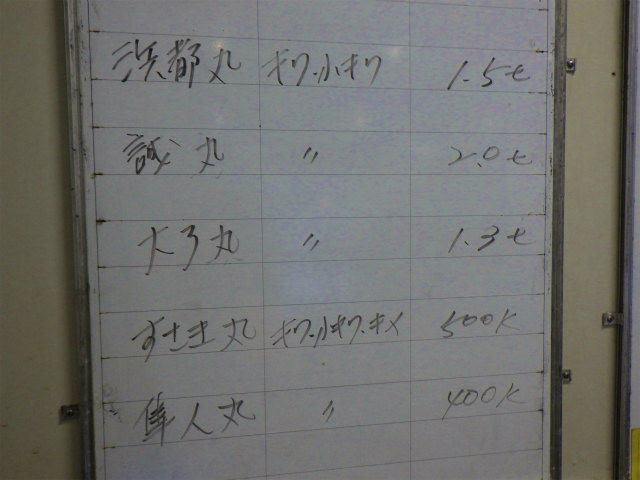 浜都丸 キワ.小キワ 1.5t
誠丸 〃 2.0t
大了丸 〃 1.3t
すさき丸 キワ.小キワ.キメ 500K
隼人丸 〃 400K